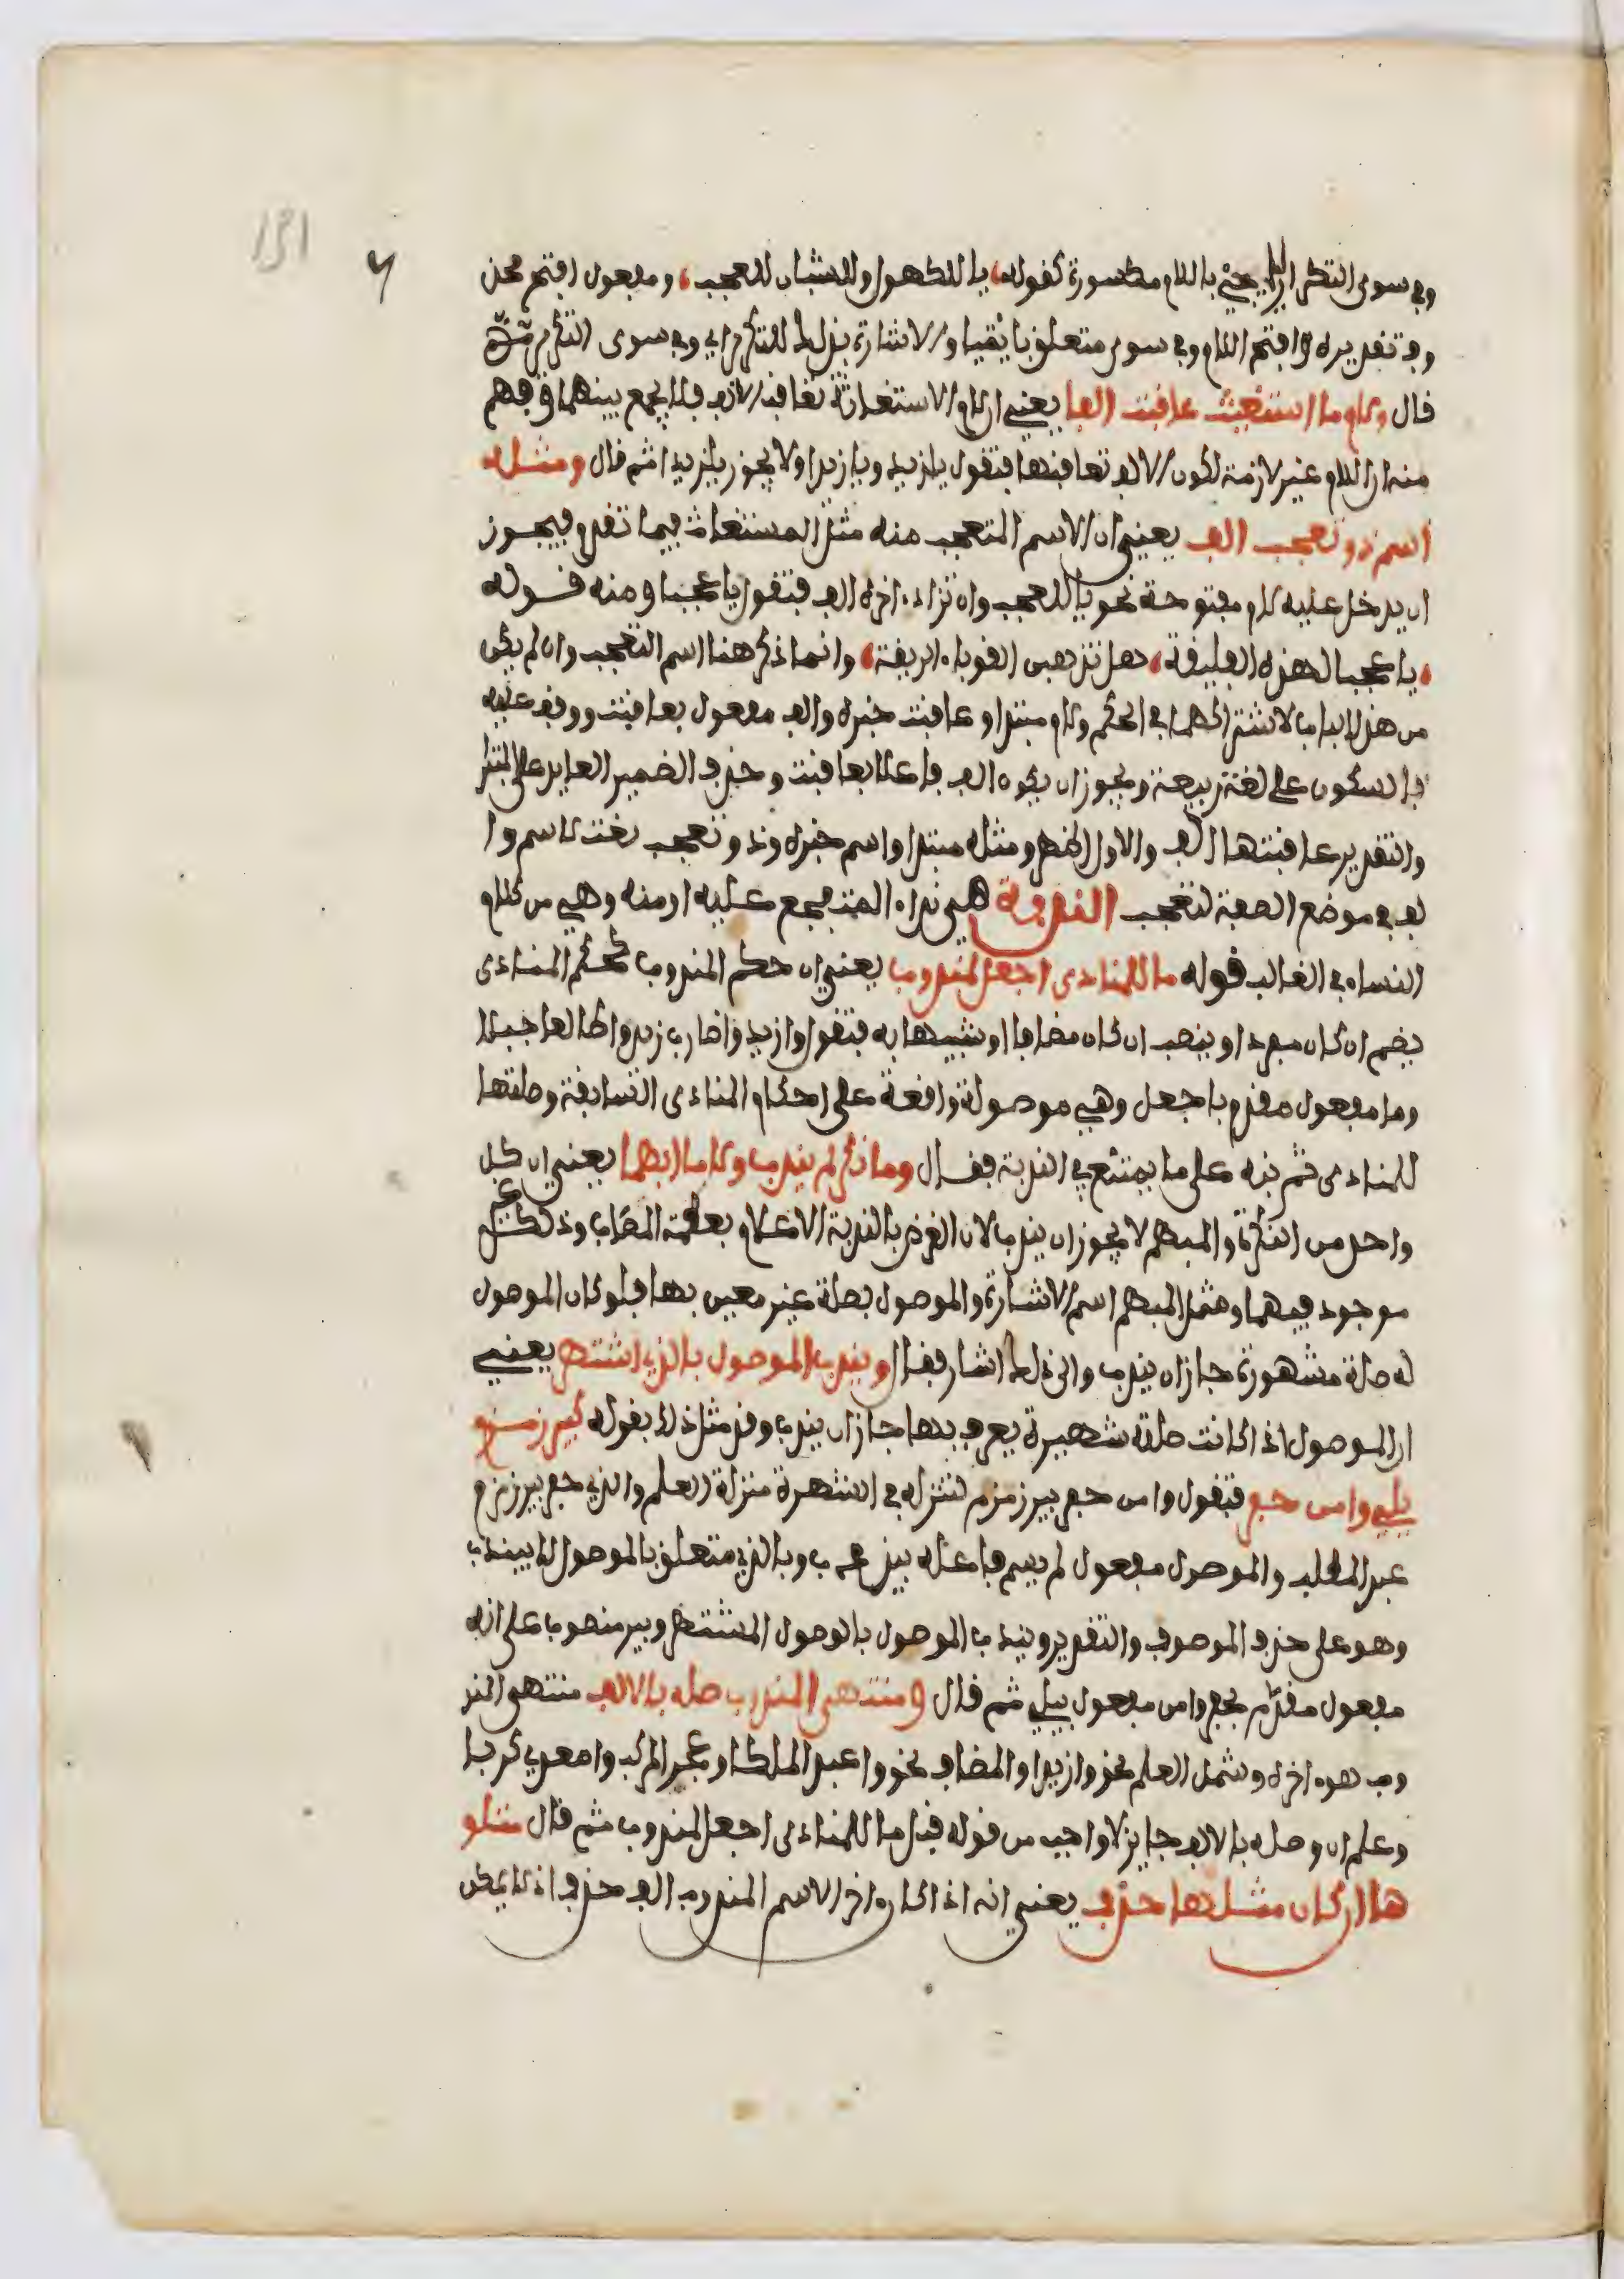 وفي سوى التكرار يجيئ باللام مكسورة كقوله، يا للكهول وللشبان للعجب، ومفعول افتح محذ
وف تقديره وافتح اللام وفي سوى متعلق بايتيا والاشارة بذلك للتكرار اي وفي سوى التكرار ثم
قال ولام ما استغيث عاقبت الف يعني ان لام الاستغاثة تعاقب الالف فلا يجمع بينهما وفهم
منه ان اللام غير لازمة لكون الالف تعاقبها فتقول يا لزيد ويا زيدا ولا يجوز يا لزيدا ثم قال ومثله
اسم ذو تعجب الف يعني ان الاسم المتعجب منه مثل المستغاث فيما تقدم فيجوز
ان يدخل عليه لام مفتوحة نحو يا للعجب وان تزاد اخره الف فتقول يا عجبا ومنه قوله
، يا عجبا لهذه الفليقة، هل تذهبن القوباء الريقة، وانما ذكر هنا اسم التعجب وان لم يكن
من هذا الباب لاشتراكهما في الحكم ولام مبتدا وعاقبت خبره والف مفعول بعاقبت ووقف عليه
بالسكون على لغة ربيعة ويجوز ان يكون الف فاعلا بعاقبت وحذف الضمير العايد على المبتدا
والتقدير عاقبتها الف والاول اظهر ومثله مبتدا واسم خبره وذو تعجب نعت لاسم وا
لف في موضع الصفة لتعجب الندبة هي نداء المتفجع عليه او منه وهي من كلام
النساء في الغالب قوله ما للمنادى اجعل لمندوب يعني ان حكم المندوب كحكم المنادى
يضم ان كان مفردا وينصب ان كان مضافا او شبيها به فتقول وا زيد وا ضارب زيد وا طالعا جبلا
وما مفعول مقدم باجعل وهي موصولة واقعة على احكام المنادى السابقة وصلتها
للمنادى ثم نبه على ما يمتنع في الندبة فقال وما نكر لم يندب ولا ما ابهما يعني ان كل
واحد من النكرة والمبهم لا يجوز ان يندب لان الغرض بالندبة الاعلام بعظمة المصاب وذلك غير
موجود فيهما وشمل المبهم اسم الاشارة والموصول بصلة غير معين بها فلو كان الموصول
له صلة مشهورة جاز ان يندب والى ذلك اشار فقال ويندب الموصول بالذي اشتهر يعني
ان الموصول اذا كانت صلته شهيرة يعرف بها جاز ان يندب وقد مثل ذلك بقوله كبير زمزم
يلي وا من حفر فتقول وا من حفر بير زمزم لتنزله في الشهرة منزلة العلم والذي حفر بير زمزم
عبد المطلب والموصول مفعول لم يسم فاعله بيندب وبالذي متعلق بالموصول لا بيندب
وهو على حذف الموصوف والتقدير ويندب الموصول بالوصول المشتهر وبير منصوب على انه
مفعول مقدم بحفر وا من مفعول بيلي ثم قال ومنتهى المندوب صله بالالف منتهى المند
وب هو اخره وشمل العلم نحو وا زيدا والمضاف نحو وا عبد الملكا وعجز المركب وا معدي كربا
وعلم ان وصله بالالف جايز لا واجب من قوله قبل ما للمنادى اجعل لمندوب ثم قال متلو
ها ان كان مثلها حذف يعني انه اذا كان اخر الاسم المندوب الف حذف اذ لا يمكن